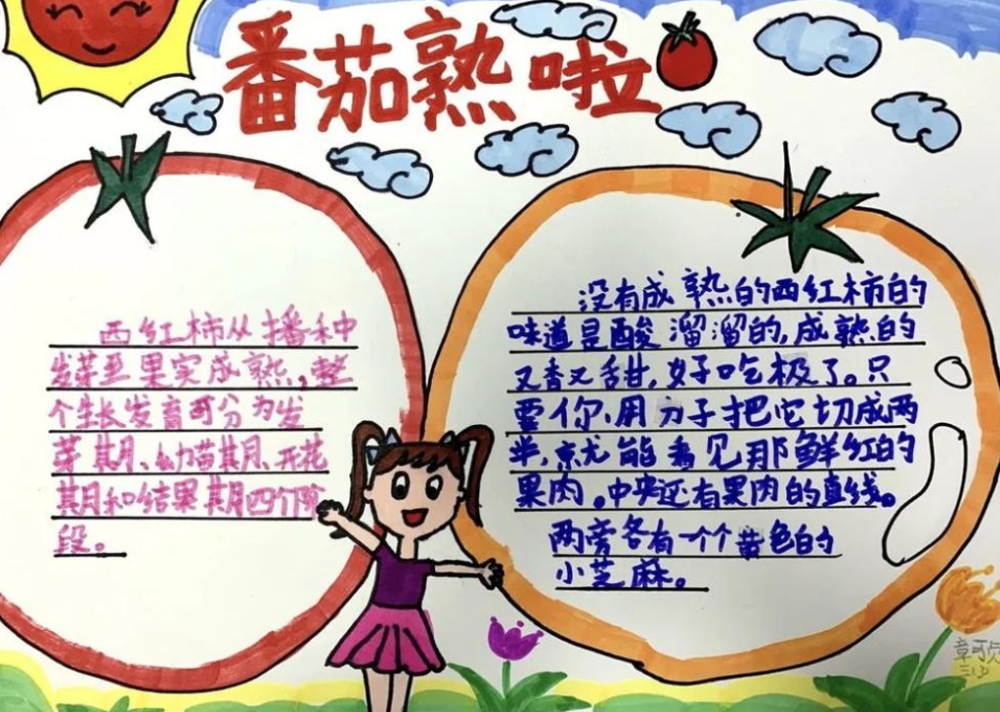 番茄熟啦
西红柿从播种
发芽至果实成熟,整
个生长发育可分为发
芽期、幼苗期、开花
期和结果期四个阶
段。
没有成熟的西红柿的
味道是酸溜溜的,成熟的
又香又甜,好吃极了。只
要你用刀子把它切成两
半,就能看见那鲜红的
果肉。中央还有果肉的直线。
两旁各有一个个黄色的
小芝麻。